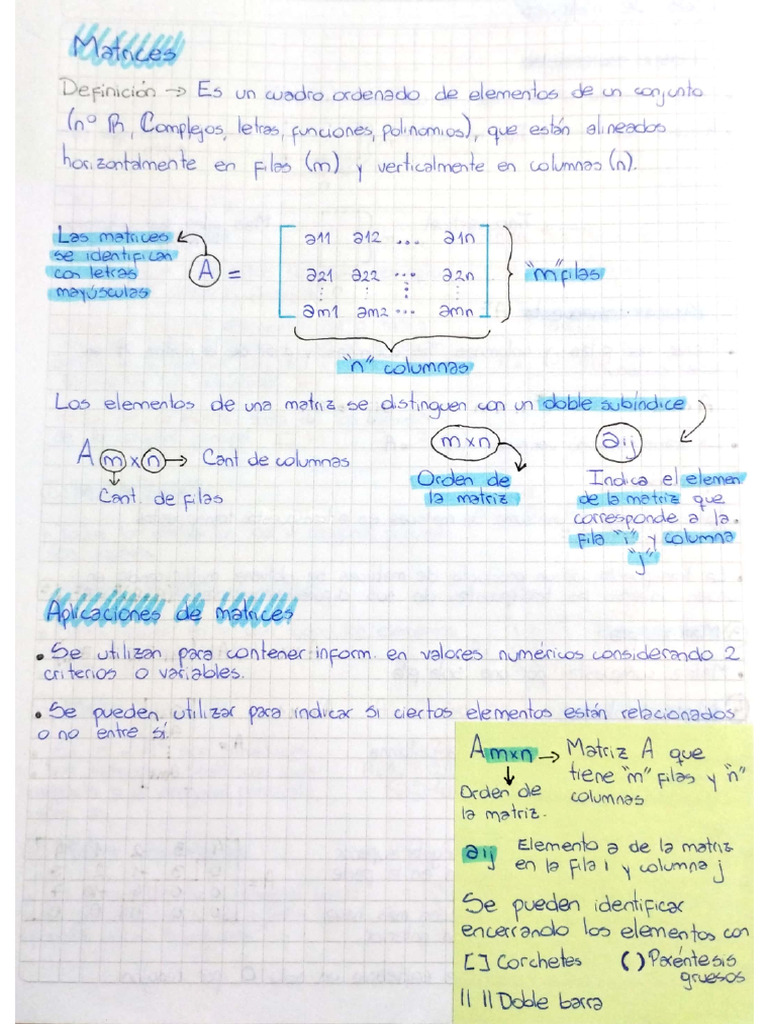 Matrices
Definición → Es un cuadro ordenado de elementos de un conjunto
(nº R, Complejos, letras, funciones, polinomios), que están alineados
horizontalmente en filas (m) y verticalmente en columnas (n).
Las matrices
se identifican
con letras
mayúsculas
A =
a11 a12 ... a1n
a21 a22 ... a2n
⋮ ⋮ ⋮ ⋮
am1 am2 ... amn
"m" filas
"n" columnas
Los elementos de una matriz se distinguen con un doble subíndice
A m x n → Cant de columnas
Cant. de filas
m x n
Orden de
la matriz
aij
Indica el elemen
de la matriz que
corresponde a la
fila "i" y columna
"j"
Aplicaciones de matrices
• Se utilizan para contener inform. en valores numéricos considerando 2
criterios o variables.
• Se pueden utilizar para indicar si ciertos elementos están relacionados
o no entre sí.
A mxn → Matriz A que
tiene "m" filas y "n"
columnas
Orden de
la matriz.
aij Elemento a de la matriz
en la fila i y columna j
Se pueden identificar
encerrando los elementos con
[ ] Corchetes ( ) Paréntesis
gruesos
|| || Doble barra